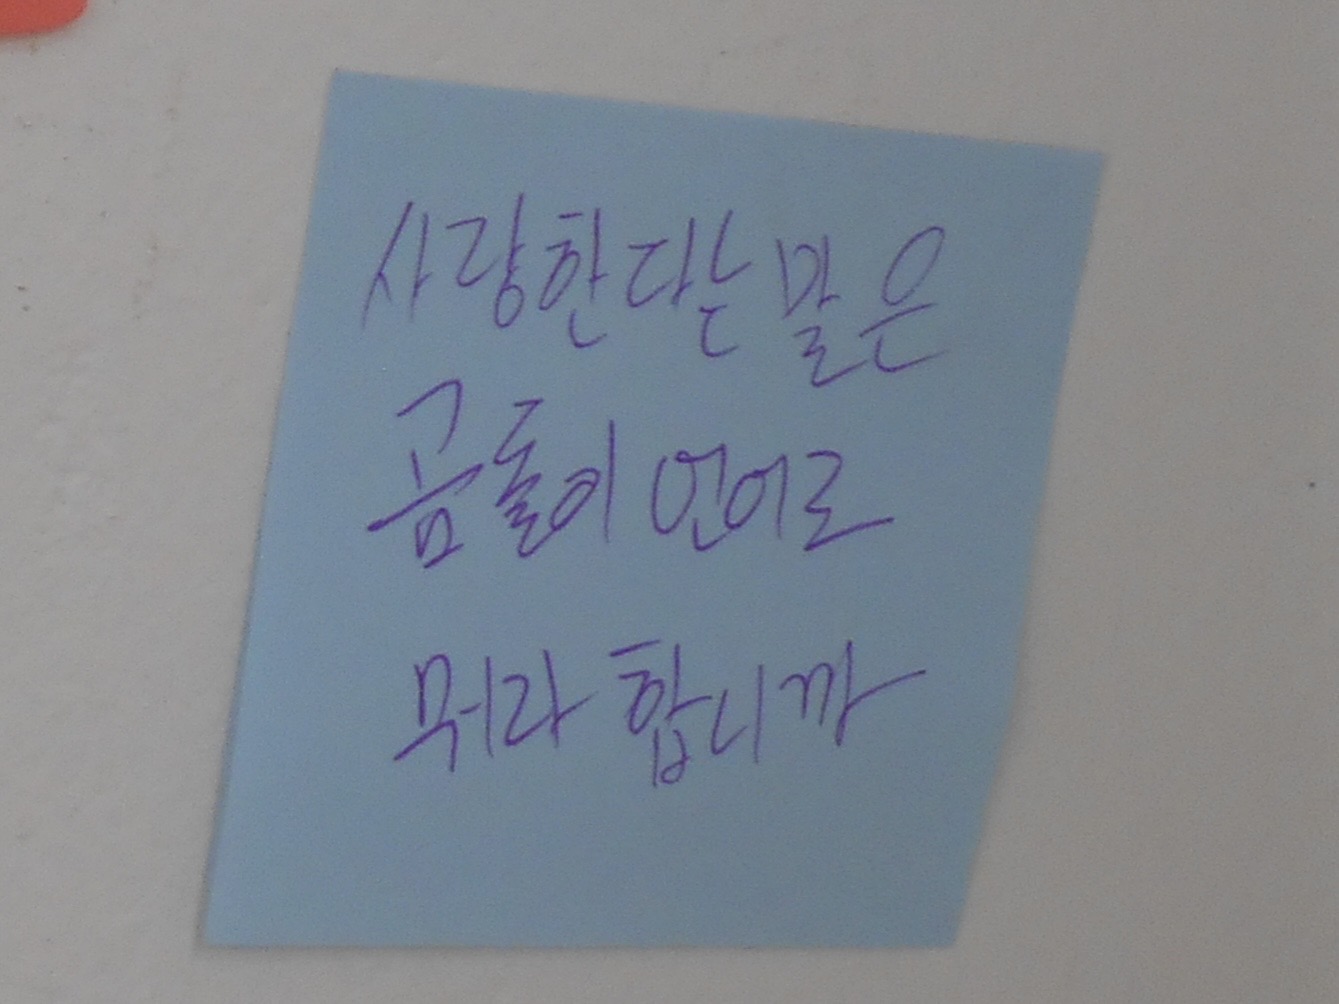 사랑한다는 말은
곰돌이 언어로
뭐라 합니까